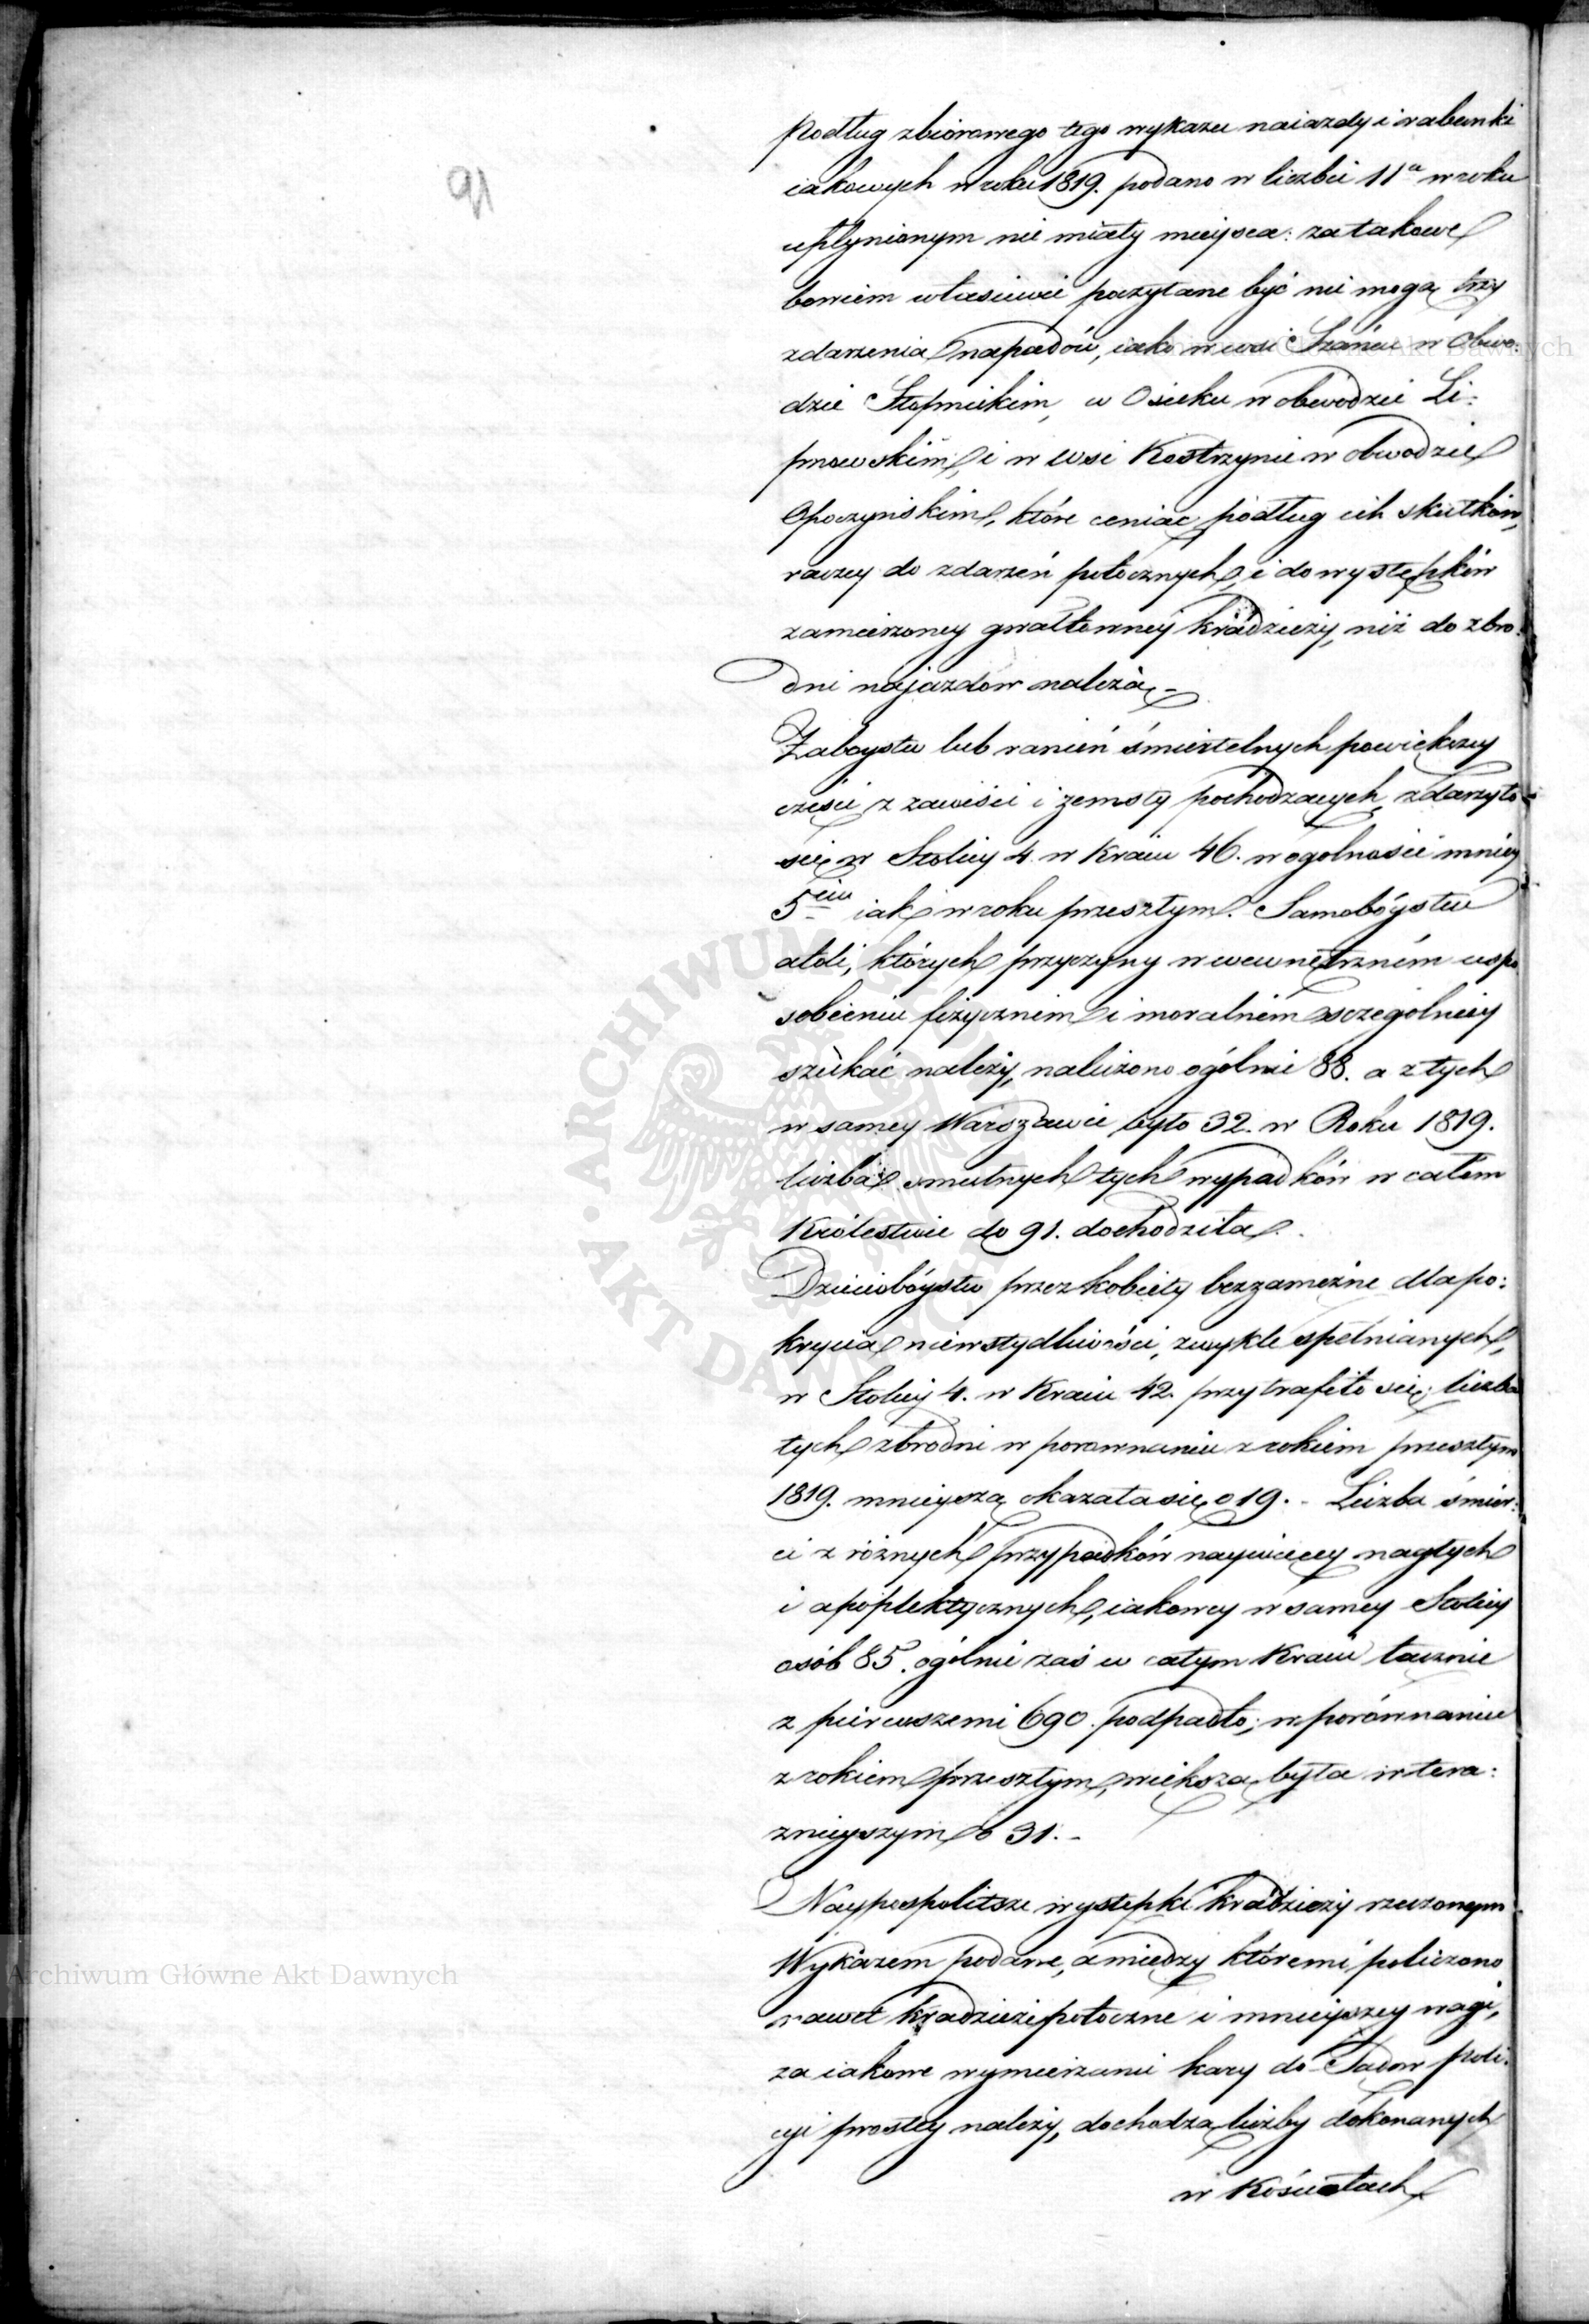 91
podług zbiorowego tego wykazu naiazdy i rabunki
iakowych w roku 1819. podano w liczbie 11a w roku
upłynionym nie miały mieysca: za takowe
bowiem właściwie poczytane być nie mogą trzy
zdarzenia napadów, iako w wsi Szańcu w Obwo:
dzie Stopnickim, w Osieku w obwodzie Li:
pnowskim, i w wsi Kostrzynie w obwodzie
Opoczyńskim, które ceniąc podług ich skutków,
raczey do zdarzeń potocznych, i do występków
zamierzoney gwałtowney kradzieży, niż do zbro:
dni najazdów należą.-
Zaboystw lub ranień śmiertelnych powiększey
części z zawiści i zemsty pochodzących, zdarzyło
się w Stolicy 4. w Kraiu 46. w ogolności mniey
5ciu iak w roku przeszłym. Samobóystw
atoli, których przyczyny w wewnętrzném uspo
sobieniu fizycznem i moralném szczególniey
szukać należy, naliczono ogólnie 88. a z tych
w samey Warszawie było 32. w Roku 1819.
liczba smutnych tych wypadków w całem
Królestwie do 91. dochodziła.
Dzieciobóystw przez kobiety bezzamężne dla po:
krycia niewstydliwości, zwykle spełnianych,
w Stolicy 4. w Kraiu 42. przytrafiło się; liczba
tych zbrodni w porownaniu z rokiem przeszłym
1819. mnieyszą okazała się o 19. - Liczba śmier:
ci z różnych przypadków naywięcey nagłych
i apoplektycznych, iakowey w samey Stolicy
osób 85. ogólnie zaś w całym Kraiu łącznie
z pierwszemi 690. podpadło; w porównaniu
z rokiem przeszłym, większą była w tera:
znieyszym o 31.-
Naypospolitsze występki kradzieży rzeczonym
Wykazem podane, a miedzy któremi policzono
nawet kradzieże potoczne i mnieyszey wagi,
za iakowe wymierzanie kary do Sadow poli:
cyi prostey należy, dochodzą liczby dokonanych
w Kościołach
Archiwum Główne Akt Dawnych
ARCHIWUM GŁÓWNE AKT DAWNYCH